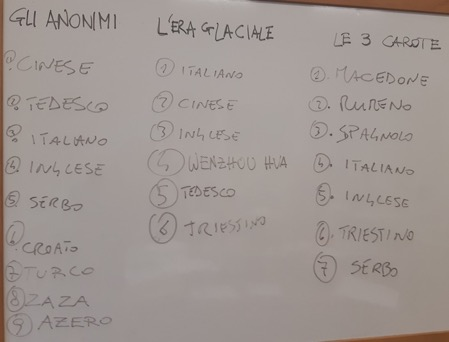 GLI ANONIMI
1. CINESE
2. TEDESCO
3. ITALIANO
4. INGLESE
5. SERBO
6. CROATO
7 TURCO
8 ZAZA
9 AZERO
L'ERA GLACIALE
1 ITALIANO
2 CINESE
3 INGLESE
4 WENZHOU HUA
5 TEDESCO
6 TRIESTINO
LE 3 CAROTE
1. MACEDONE
2. RUMENO
3. SPAGNOLO
4. ITALIANO
5. INGLESE
6. TRIESTINO
7 SERBO